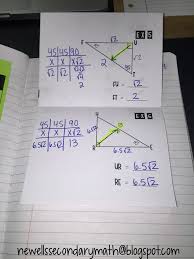 EX 5
45 45 90
X X X√2
√2 √2 √2
√2
2
√2
2
E
U
F
√2
FU = √2
FT = 2
EX 6
45 45 90
X X X√2
6.5√2 6.5√2 13
6.5√2
13
R
6.5√2
UR = 6.5√2
RE = 6.5√2
newellssecondarymath@blogspot.com